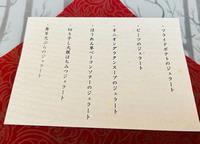 ・フライドポテトのジェラート
・ビーツのジェラート
・オニオングラタンスープのジェラート
・ほうれん草ベーコンソテーのジェラート
・切り干し大根はちみつジェラート
のジェラート